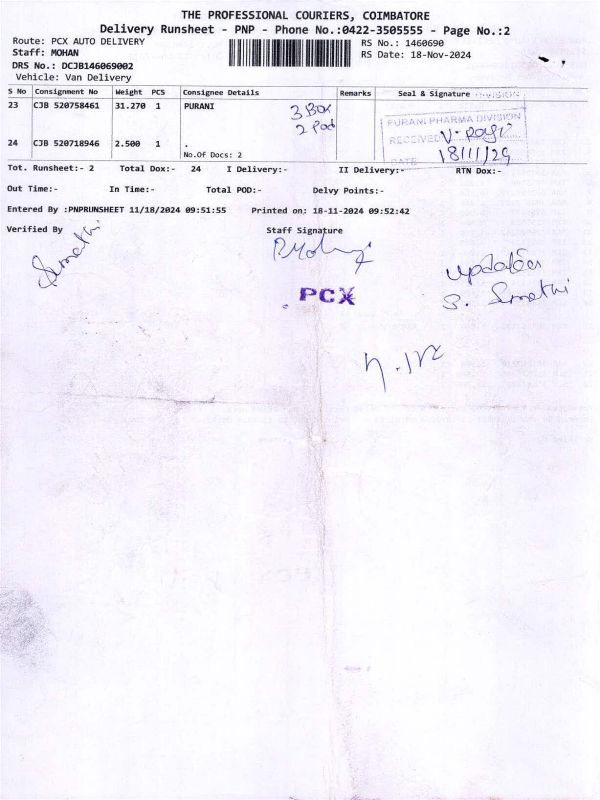 THE PROFESSIONAL COURIERS, COIMBATORE
Delivery Runsheet - PNP - Phone No.:0422-3505555 - Page No.:2
Route: PCX AUTO DELIVERY
RS No.: 1460690
Staff: MOHAN
RS Date: 18-Nov-2024
DRS No.: DCJB146069002
Vehicle: Van Delivery
S No Consignment No Weight PCS Consignee Details Remarks Seal & Signature
23 CJB 520758461 31.270 1 PURANI
3 Box
2 Pod
PURANI PHARMA DIVISION
RECEIVED
DATE 18/11/24
24 CJB 520718946 2.500 1 .
No.Of Docs: 2
Tot. Runsheet:- 2 Total Dox:- 24 I Delivery:- II Delivery:- RTN Dox:-
Out Time:- In Time:- Total POD:- Delvy Points:-
Entered By :PNPRUNSHEET 11/18/2024 09:51:55 Printed on: 18-11-2024 09:52:42
Verified By Staff Signature
PCX
updated
S. Smathi